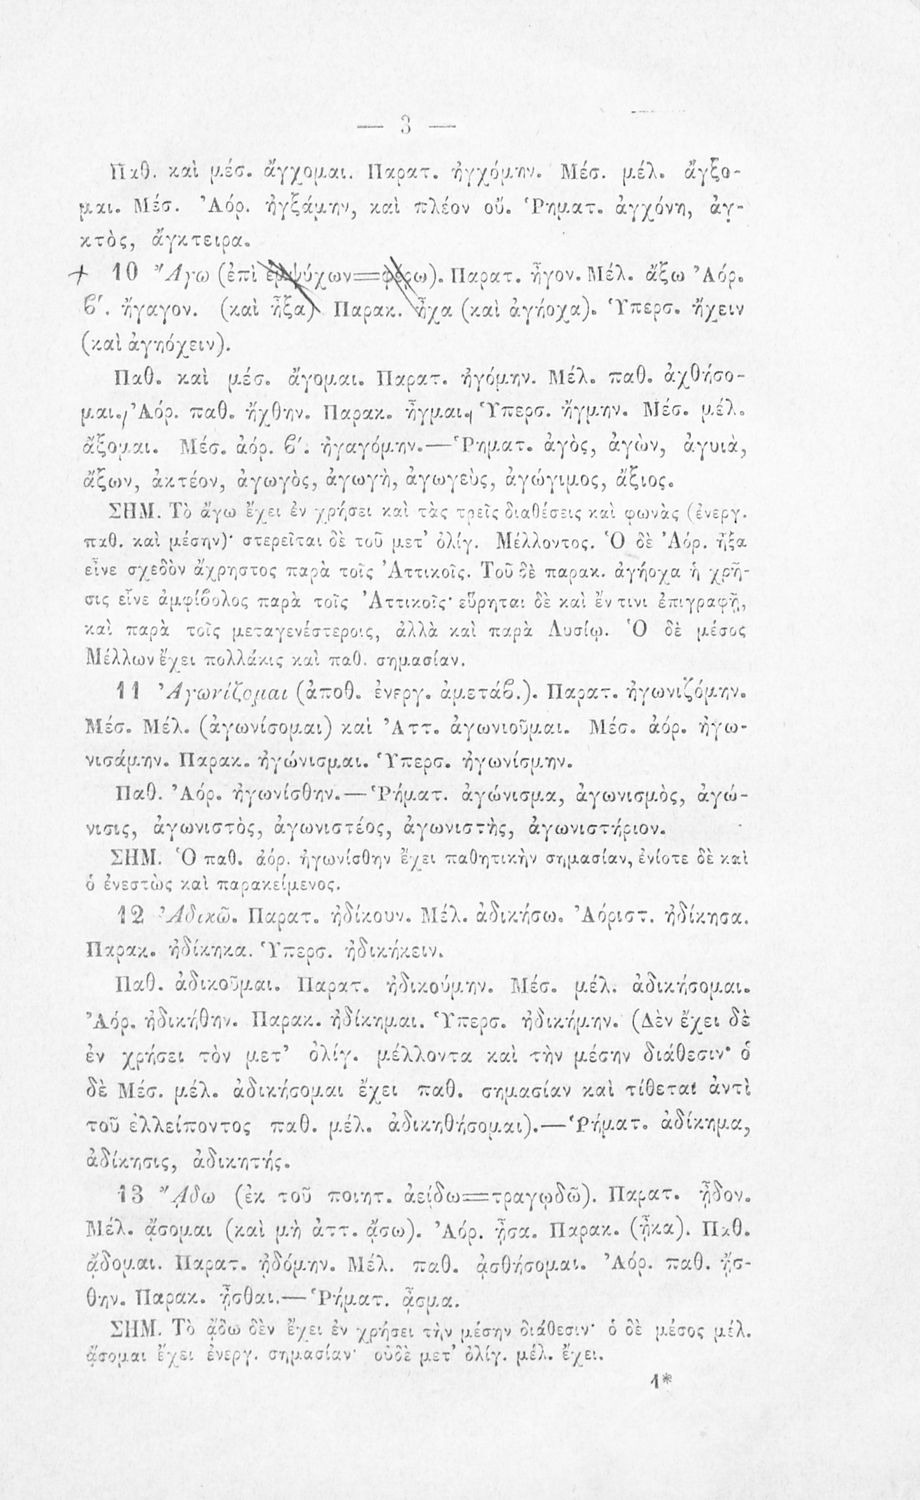 — 3 —
Παθ. καὶ μέσ. ἄγχομαι. Παρατ. ἠγχόμην. Μέσ. μέλ. ἄγξο-
μαι. Μέσ. Ἀόρ. ἠγξάμην, καὶ πλέον οὔ. Ῥηματ. ἀγχόνη, ἀγ-
κτὸς, ἄγκτειρα.
+ 10 Ἄγω (ἐπὶ ἐμψύχων=φέρω). Παρατ. ἦγον. Μέλ. ἄξω Ἀόρ.
ϐ΄. ἤγαγον. (καὶ ἦξα) Παρακ. ἦχα (καὶ ἀγήοχα). Ὑπερσ. ἤχειν
(καὶ ἀγηόχειν).
Παθ. καὶ μέσ. ἄγομαι. Παρατ. ἠγόμην. Μέλ. παθ. ἀχθήσο-
μαι. Ἀόρ. παθ. ἤχθην. Παρακ. ἦγμαι. Ὑπερσ. ἤγμην. Μέσ. μέλ.
ἄξομαι. Μέσ. ἀόρ. ϐ΄. ἠγαγόμην.—Ῥηματ. ἀγὸς, ἀγὼν, ἀγυιὰ,
ἄξων, ἀκτέον, ἀγωγὸς, ἀγωγὴ, ἀγωγεὺς, ἀγώγιμος, ἄξιος.
ΣΗΜ. Τὸ ἄγω ἔχει ἐν χρήσει καὶ τὰς τρεῖς διαθέσεις καὶ φωνὰς (ἐνεργ.
παθ. καὶ μέσην)· στερεῖται δὲ τοῦ μετ’ ὀλίγ. Μέλλοντος. Ὁ δὲ Ἀόρ. ἦξα
εἶνε σχεδὸν ἄχρηστος παρὰ τοῖς Ἀττικοῖς. Τοῦ δὲ παρακ. ἀγήοχα ἡ χρῆ-
σις εἶνε ἀμφίϐολος παρὰ τοῖς Ἀττικοῖς· εὕρηται δὲ καὶ ἔν τινι ἐπιγραφῇ,
καὶ παρὰ τοῖς μεταγενέστεροις, ἀλλὰ καὶ παρὰ Λυσίῳ. Ὁ δὲ μέσος
Μέλλων ἔχει πολλάκις καὶ παθ. σημασίαν.
11 Ἀγωνίζομαι (ἀποθ. ἐνεργ. ἀμετάϐ.). Παρατ. ἠγωνιζόμην.
Μέσ. Μέλ. (ἀγωνίσομαι) καὶ Ἀττ. ἀγωνιοῦμαι. Μέσ. ἀόρ. ἠγω-
νισάμην. Παρακ. ἠγώνισμαι. Ὑπερσ. ἠγωνίσμην.
Παθ. Ἀόρ. ἠγωνίσθην.—Ῥήματ. ἀγώνισμα, ἀγωνισμὸς, ἀγώ-
νισις, ἀγωνιστὸς, ἀγωνιστέος, ἀγωνιστὴς, ἀγωνιστήριον.
ΣΗΜ. Ὁ παθ. ἀόρ. ἠγωνίσθην ἔχει παθητικὴν σημασίαν, ἐνίοτε δὲ καὶ
ὁ ἐνεστὼς καὶ παρακείμενος.
12 Ἀδικῶ. Παρατ. ἠδίκουν. Μέλ. ἀδικήσω. Ἀόριστ. ἠδίκησα.
Παρακ. ἠδίκηκα. Ὑπερσ. ἠδικήκειν.
Παθ. ἀδικοῦμαι. Παρατ. ἠδικούμην. Μέσ. μέλ. ἀδικήσομαι.
Ἀόρ. ἠδικήθην. Παρακ. ἠδίκημαι. Ὑπερσ. ἠδικήμην. (Δὲν ἔχει δὲ
ἐν χρήσει τὸν μετ’ ὀλίγ. μέλλοντα καὶ τὴν μέσην διάθεσιν· ὁ
δὲ Μέσ. μέλ. ἀδικήσομαι ἔχει παθ. σημασίαν καὶ τίθεται ἀντὶ
τοῦ ἐλλείποντος παθ. μέλ. ἀδικηθήσομαι).—Ῥήματ. ἀδίκημα,
ἀδίκησις, ἀδικητής.
13 ᾌδω (ἐκ τοῦ ποιητ. ἀείδω=τραγῳδῶ). Παρατ. ᾖδον.
Μέλ. ᾄσομαι (καὶ μὴ ἀττ. ᾄσω). Ἀόρ. ᾖσα. Παρακ. (ᾖκα). Παθ.
ᾄδομαι. Παρατ. ᾐδόμην. Μέλ. παθ. ᾀσθήσομαι. Ἀόρ. παθ. ᾔσ-
θην. Παρακ. ᾖσθαι.—Ῥήματ. ᾆσμα.
ΣΗΜ. Τὸ ᾄδω δὲν ἔχει ἐν χρήσει τὴν μέσην διάθεσιν· ὁ δὲ μέσος μέλ.
ᾄσομαι ἔχει ἐνεργ. σημασίαν· οὐδὲ μετ’ ὀλίγ. μέλ. ἔχει.
1*